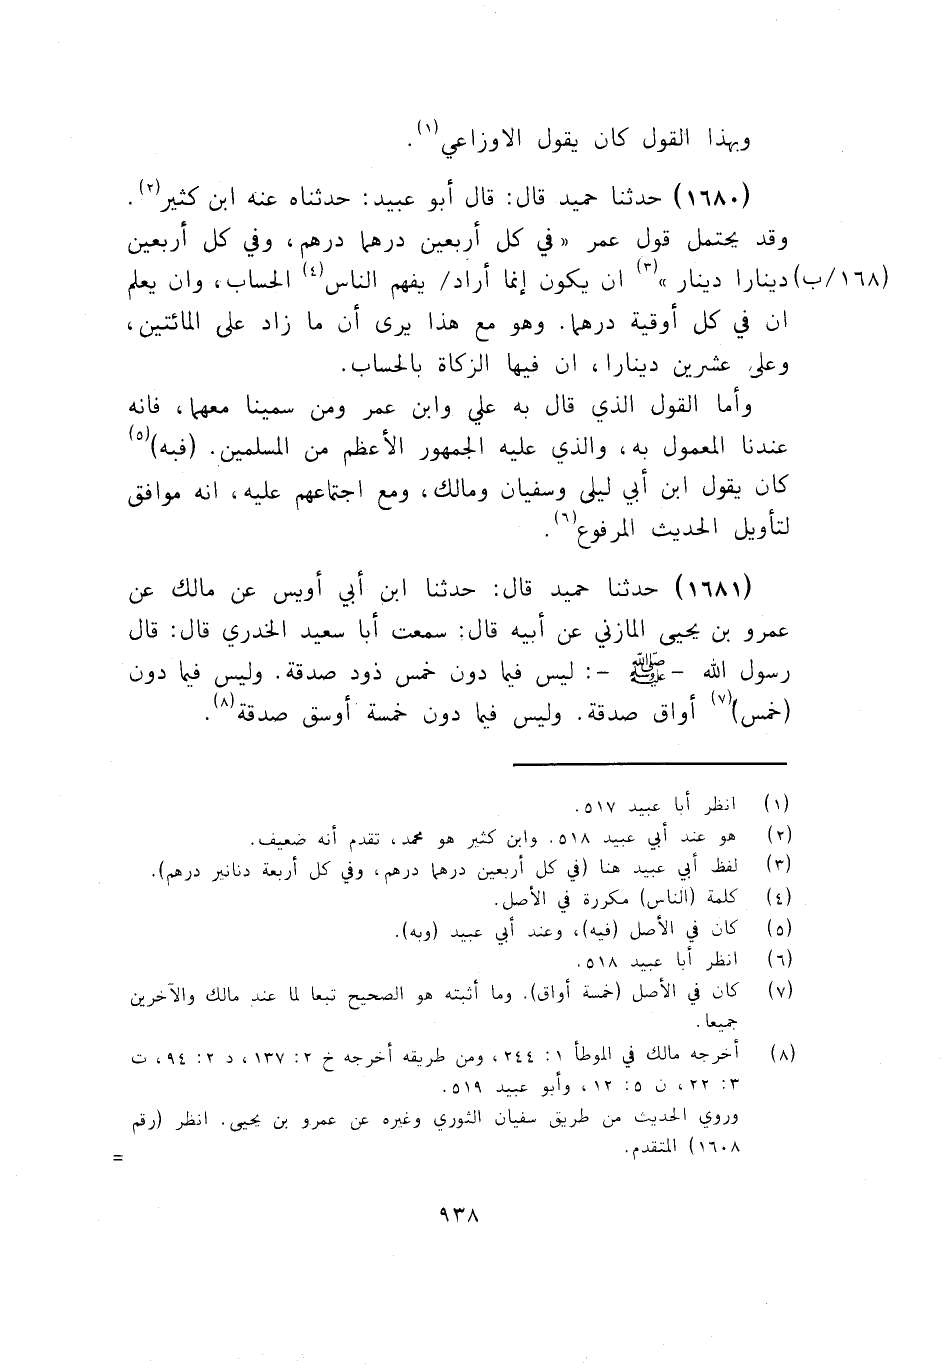 وبهذا القول كان يقول الاوزاعي(١).
(١٦٨٠) حدثنا حميد قال: قال أبو عبيد: حدثناه عنه ابن كثير(٢).
وقد يحتمل قول عمر «في كل أربعين درهما درهم، وفي كل أربعين
(١٦٨/ب) دينارا دينار»(٣) ان يكون إنما أراد/ يفهم الناس(٤) الحساب، وان يعلم
ان في كل أوقية درهما. وهو مع هذا يرى أن ما زاد على المائتين،
وعلى عشرين دينارا، ان فيها الزكاة بالحساب.
وأما القول الذي قال به علي وابن عمر ومن سمينا معهما، فانه
عندنا المعمول به، والذي عليه الجمهور الأعظم من المسلمين. (فبه)(٥)
كان يقول ابن أبي ليلى وسفيان ومالك، ومع اجتماعهم عليه، انه موافق
لتأويل الحديث المرفوع(٦).
(١٦٨١) حدثنا حميد قال: حدثنا ابن أبي أويس عن مالك عن
عمرو بن يحيى المازني عن أبيه قال: سمعت أبا سعيد الخدري قال: قال
رسول الله -ﷺ-: ليس فيما دون خمس ذود صدقة. وليس فيما دون
(خمس)(٧) أواق صدقة. وليس فيما دون خمسة أوسق صدقة(٨).
(١) انظر أبا عبيد ٥١٧.
(٢) هو عند أبي عبيد ٥١٨. وابن كثير هو محمد، تقدم أنه ضعيف.
(٣) لفظ أبي عبيد هنا (في كل أربعين درهما درهم، وفي كل أربعة دنانير درهم).
(٤) كلمة (الناس) مكررة في الأصل.
(٥) كان في الأصل (فيه)، وعند أبي عبيد (وبه).
(٦) انظر أبا عبيد ٥١٨.
(٧) كان في الأصل (خمسة أواق). وما أثبته هو الصحيح تبعا لما عند مالك والآخرين
جميعا.
(٨) أخرجه مالك في الموطأ ١: ٢٤٤، ومن طريقه أخرجه خ ٢: ١٣٧، د ٢: ٩٤، ت
٣: ٢٢، ن ٥: ١٢، وأبو عبيد ٥١٩.
وروي الحديث من طريق سفيان الثوري وغيره عن عمرو بن يحيى. انظر (رقم
١٦٠٨) المتقدم.
=
٩٣٨